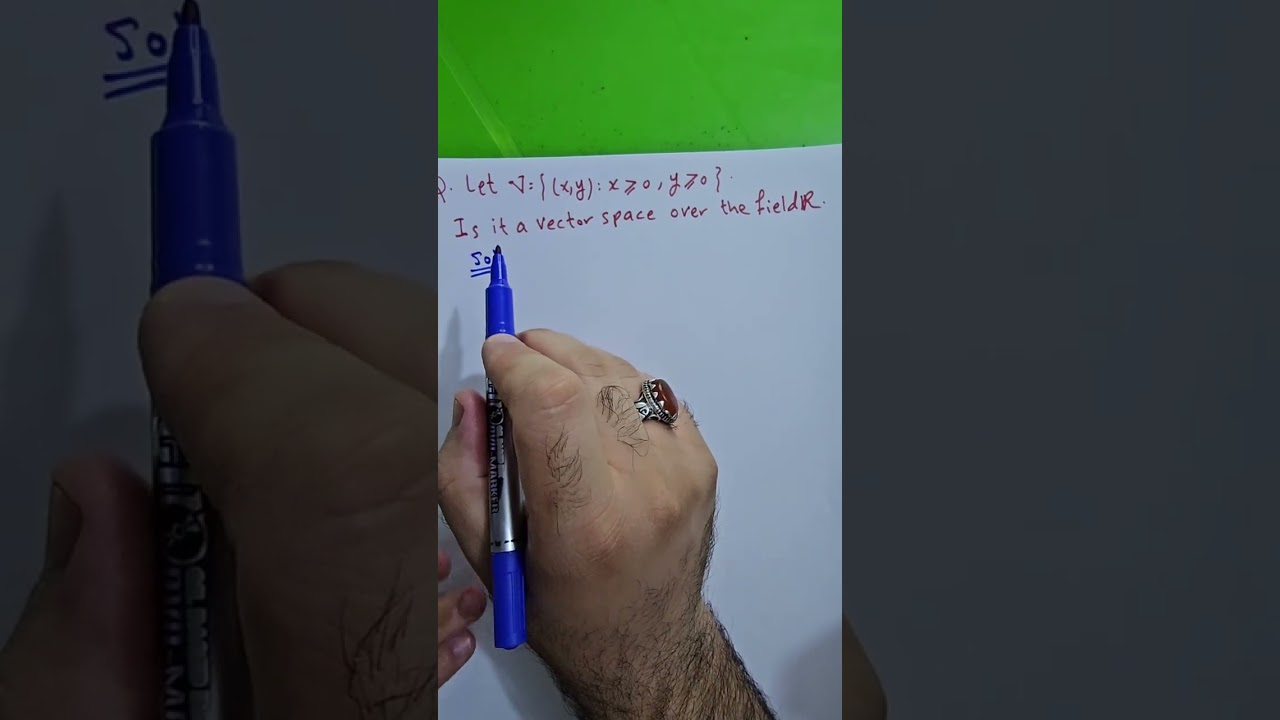 Q. Let V={(x,y): x⩾0, y⩾0}.
Is it a vector space over the field ℝ.
So
MARKER